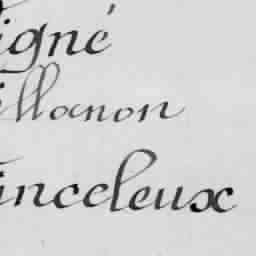 igné
illanon
inceleux